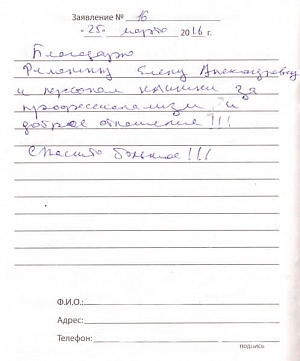 Заявление № 16
"25" марта 2016 г.
Благодарю
Елену Александровну
и персонал клиники за
профессионализм и
доброе отношение!!!
Спасибо большое!!!
Ф.И.О.:
Адрес:
Телефон:
подпись